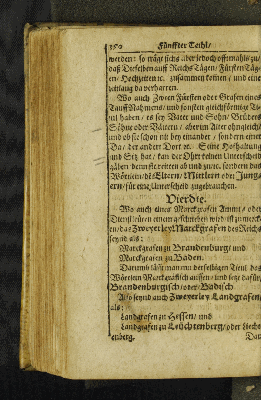 150 Fünffter Theil/
werden: so trägt sichs aber jedoch offtmahls zu/
daß Dieselben auff Reichs Tägen/ Fürsten Täg-
en/ Hochzeiten ec. zusammen komen/ und eine
zeitlang da verharren.
Wo auch Zween Fürsten oder Grafen eines
Tauff Nahmens/ und sonsten gleichförmige Ti-
tul haben/ es sey Vater und Sohn/ Brüder
Söhn oder Vättern/ oberzn Alter obgleich/
und ob sie schon nit bey einander/ sondern einer
Da/ der ander Dort ec. Seine Hofhaltung
und Sitz hat/ kan der Ohrt keinen Unterscheid
gäben
Wörtlein/ des Eltern/ Mittlern oder Jung-
ern/ für eine Unterscheid zugebrauchen.
Vierdte.
Wo auch eines Marckgrafen
Dienst
en/ da Zweyerley Marckgrafen des Reichs
seynd als:
Marckgrafen zu Brandenburg/ und
Marckgrafen zu Baden.
Darumb läßt man nu derselbigen Titul das
Wörtlein Marckgräfisch aussen/ und setzt dafür/
Brandenburgisch/ oder/ Badisch.
Also seynd auch Zweyerley Landgrafen/
als:
Landgrafen zu Hessen/ und
Landgrafen zu Leuchtenberg/ oder Liech-
tenberg.